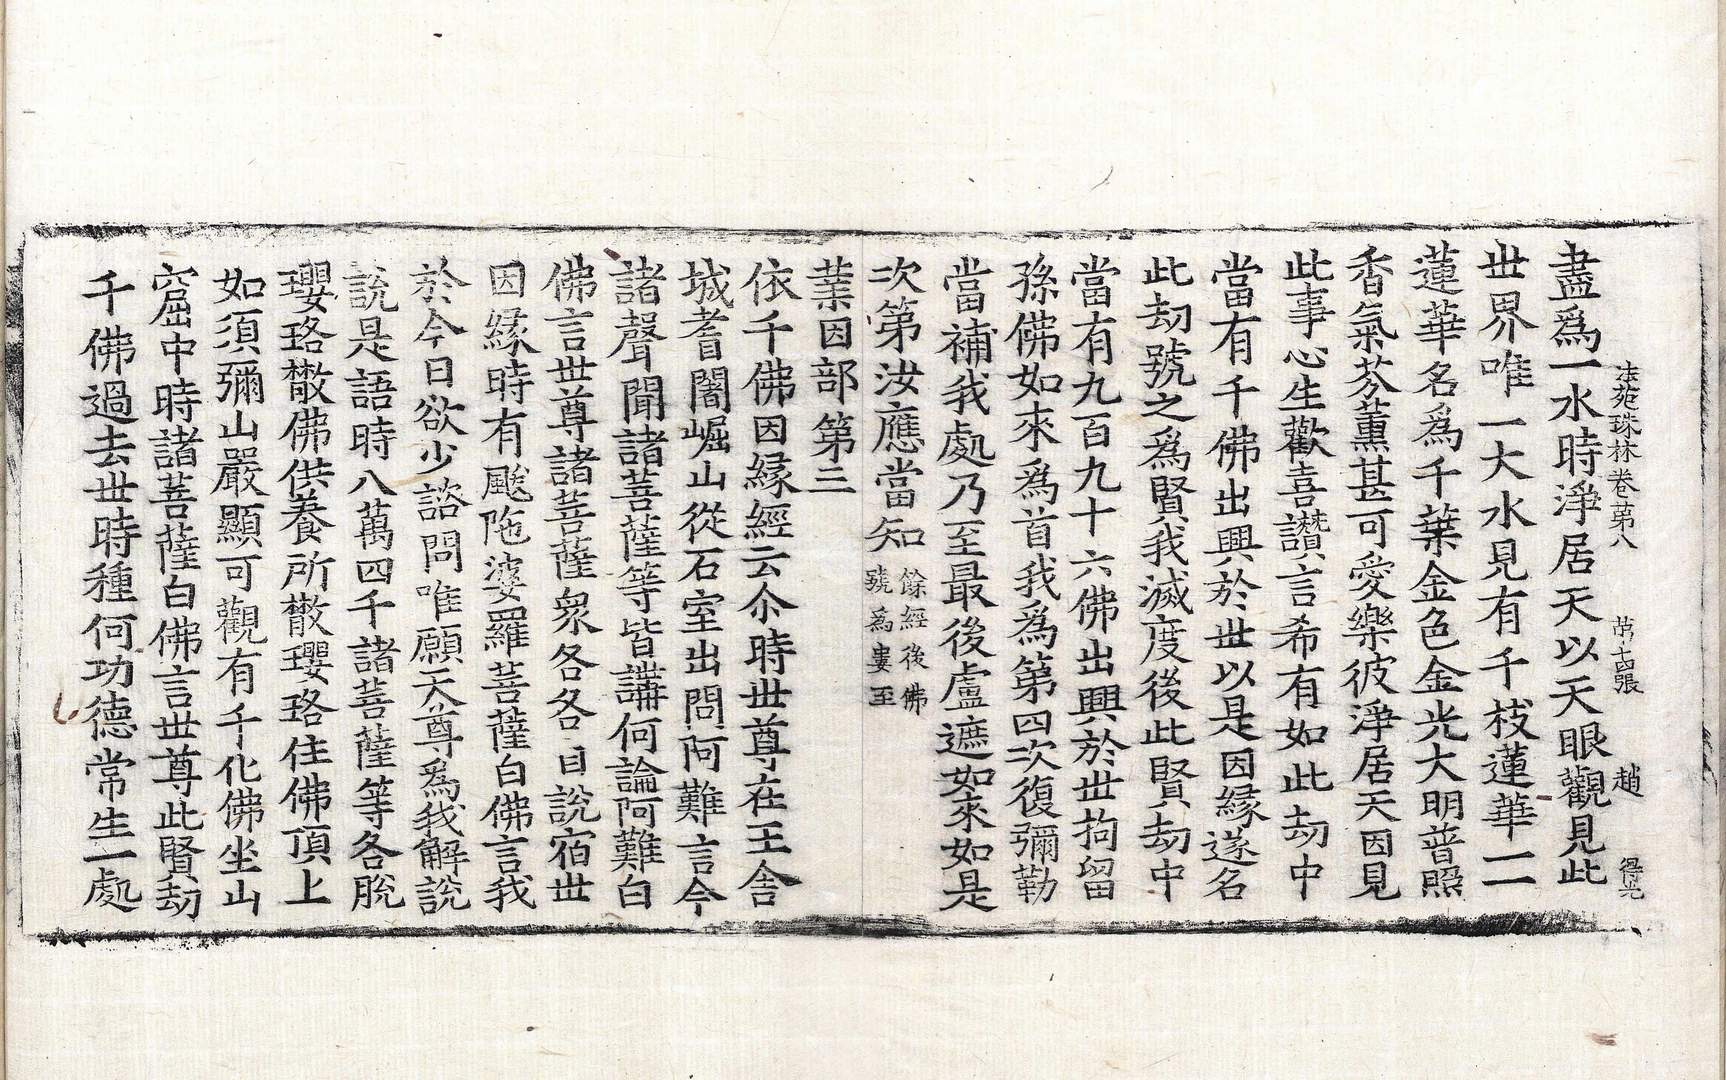 法苑珠林卷第八 茁 十四張 趙 得光
盡爲一水時淨居天以天眼觀見此
世界唯一大水見有千枝蓮華一一
蓮華名爲千葉金色金光大明普照
香氣芬薰甚可愛樂彼淨居天因見
此事心生歡喜讚言希有如此劫中
當有千佛出興於世以是因緣遂名
此劫號之爲賢我滅度後此賢劫中
當有九百九十六佛出興於世拘留
孫佛如來爲首我爲第四次復彌勒
當補我處乃至最後盧遮如來如是
次第汝應當知 餘經後佛
號爲婁至
業因部第三
依千佛因緣經云尒時世尊在王舍
城耆闍崛山從石室出問阿難言今
諸聲聞諸菩薩等皆講何論阿難白
佛言世尊諸菩薩衆各各自說宿世
因緣時有颰陁婆羅菩薩白佛言我
於今日欲少諮問唯願天尊爲我解說
說是語時八萬四千諸菩薩等各脫
瓔珞散佛供養所散瓔珞住佛頂上
如須彌山嚴顯可觀有千化佛坐山
窟中時諸菩薩白佛言世尊此賢劫
千佛過去世時種何功德常生一處